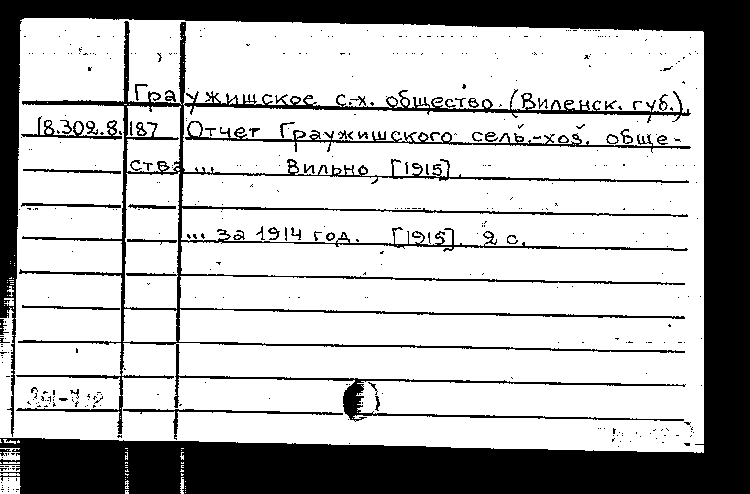 Граужишское с.-х. общество (Виленск. губ.).
18.302.8.187 Отчет Граужишского сель.-хоз. обще-
ства ... Вильно, [1915].
... за 1914 год. [1915]. 2 с.